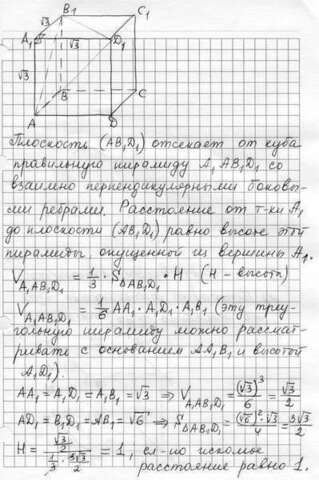 B₁
C₁
√3
A₁
√3
D₁
√3
B
C
A
D
Плоскость (AB₁D₁) отсекает от куба
правильную пирамиду A₁AB₁D₁ со
взаимно перпендикулярными боковы-
ми ребрами. Расстояние от т-ки A₁
до плоскости (AB₁D₁) равно высоте этой
пирамиды, опущенной из вершины A₁.
V_{A₁AB₁D₁} = 1/3 · S_{ΔAB₁D₁} · H (H - высота)
V_{A₁AB₁D₁} = 1/6 AA₁ · A₁D₁ · A₁B₁ (эту треу-
гольную пирамиду можно рассмат-
ривать с основанием AA₁B₁ и высотой
A₁D₁).
AA₁ = A₁D₁ = A₁B₁ = √3 ⇒ V_{A₁AB₁D₁} = (√3)³/6 = √3/2
AD₁ = B₁D₁ = AB₁ = √6 ⇒ S_{ΔAB₁D₁} = (√6)²·√3/4 = 3√3/2
H = (√3/2)/(1/3 · 3√3/2) = 1, сл-но искомое
расстояние равно 1.